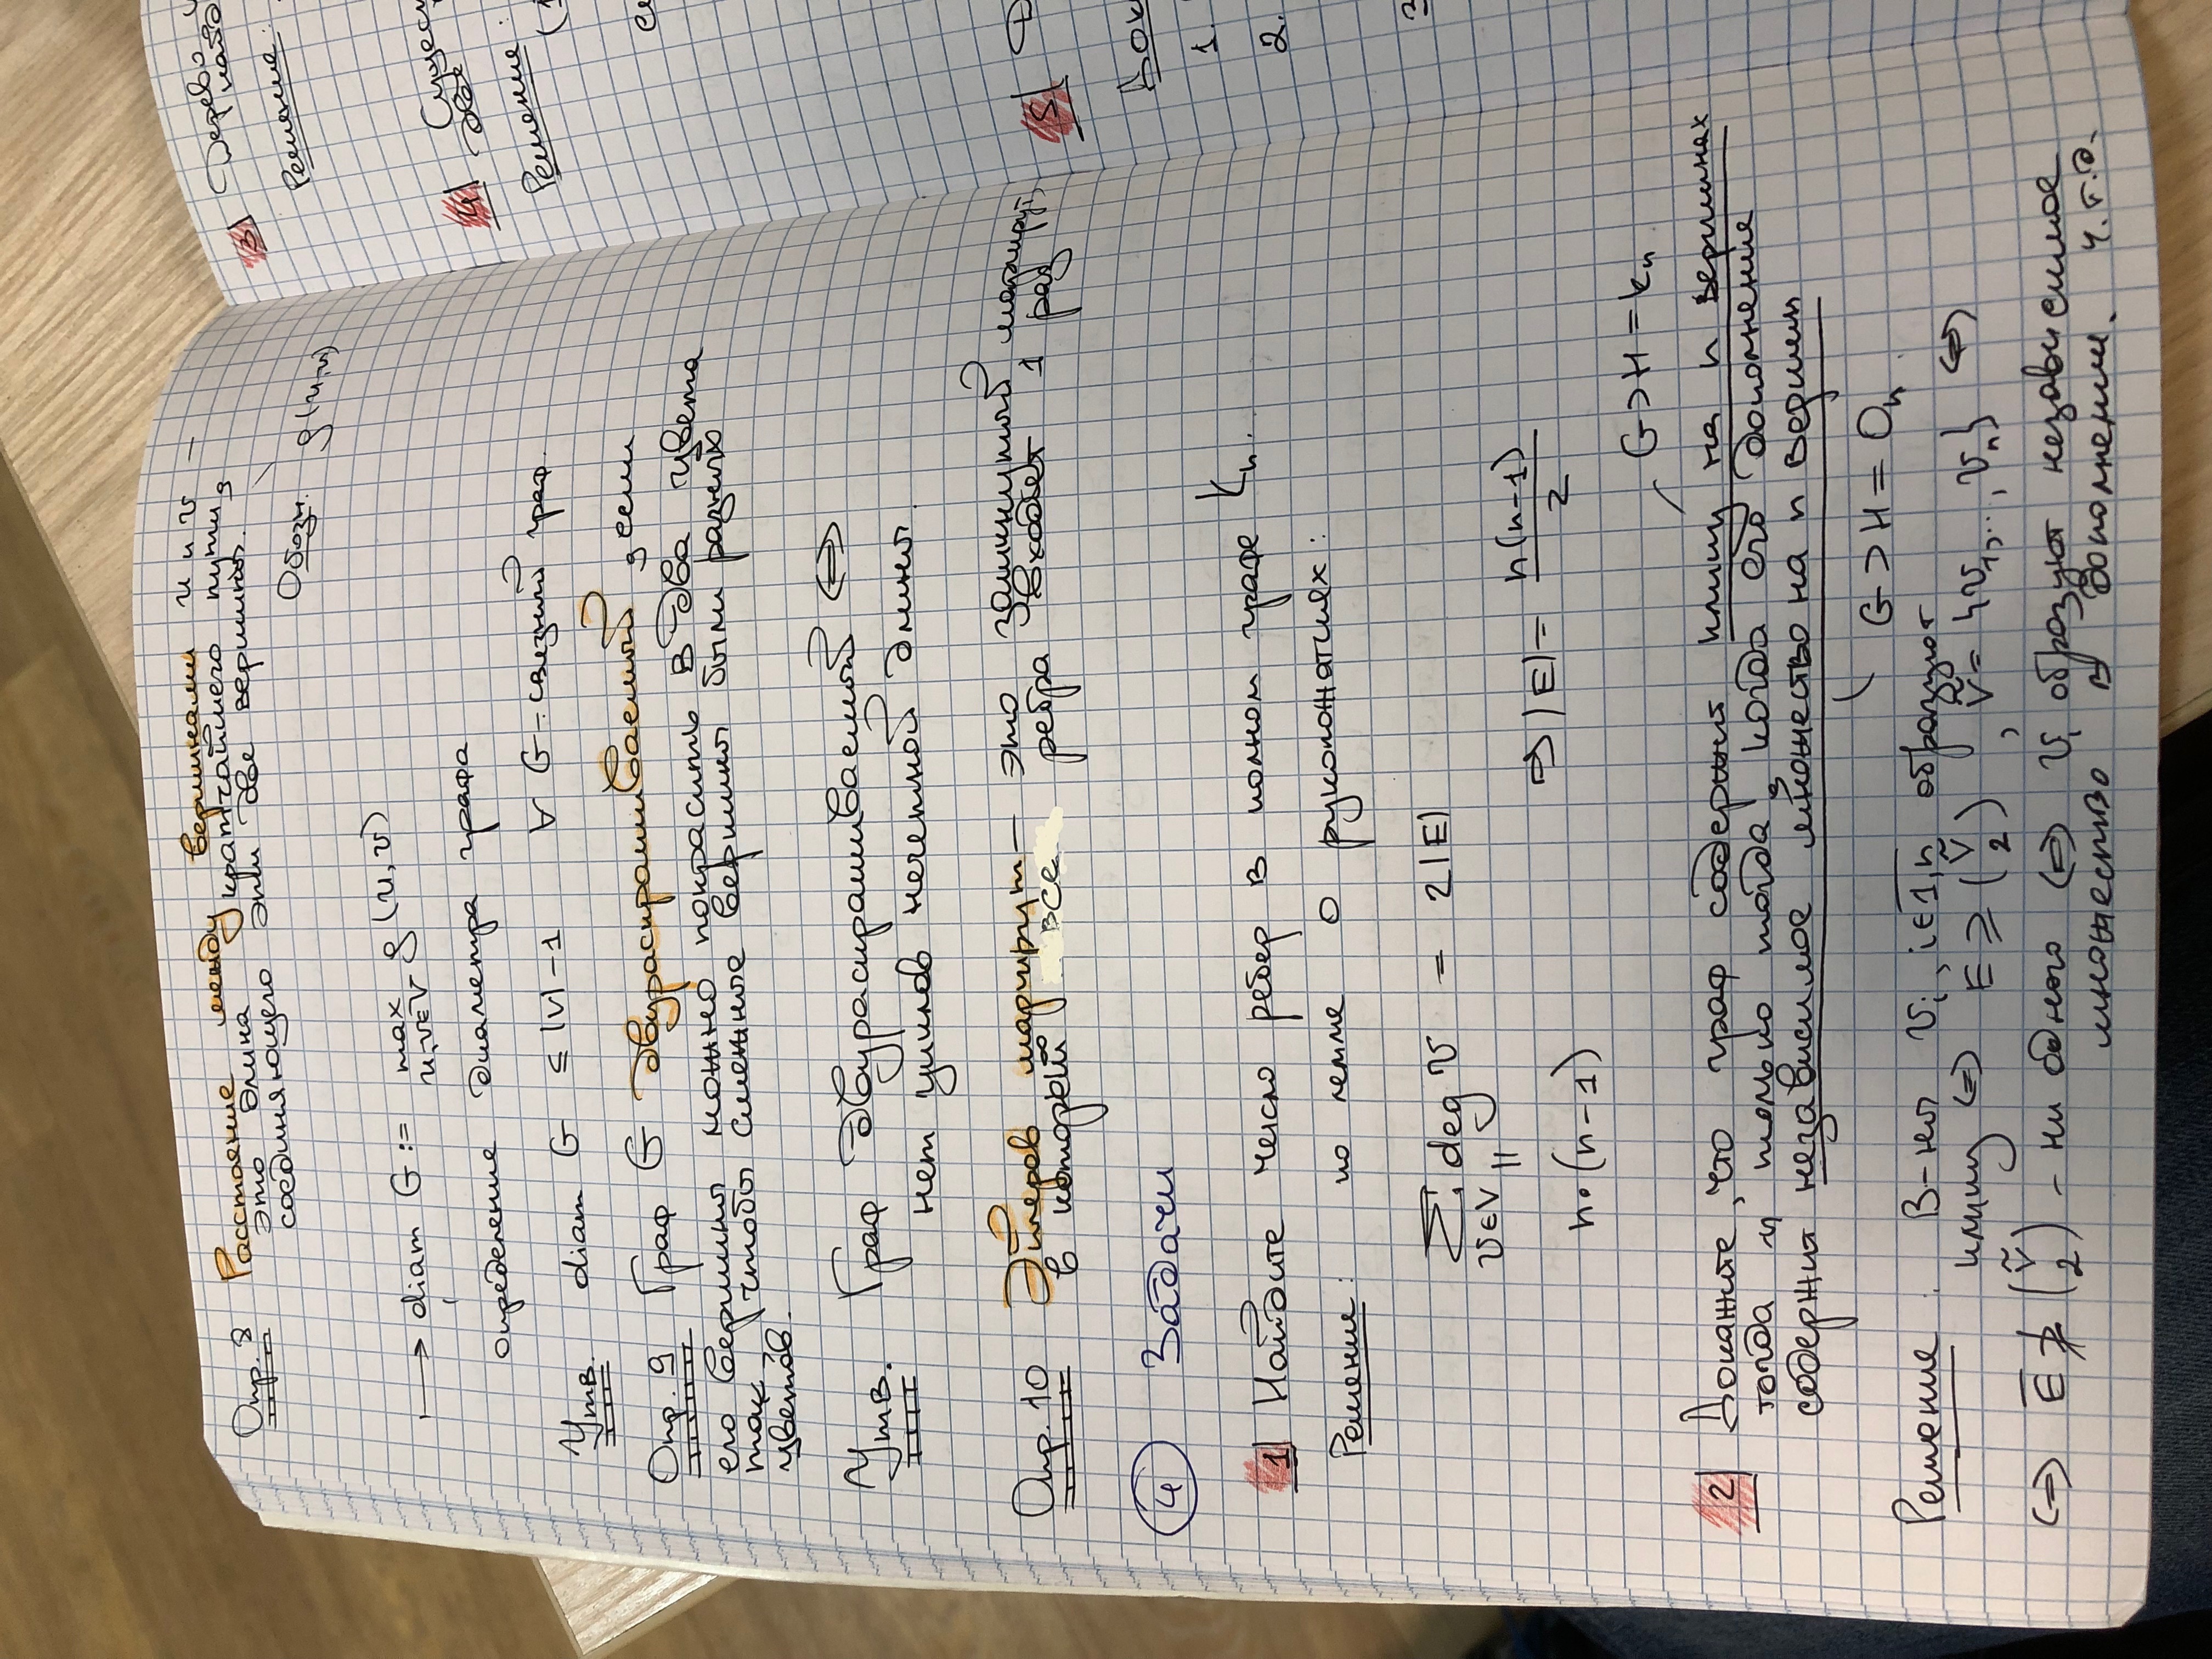 Опр. 8 Расстояние между вершинами u и v –
это длина кратчайшего пути,
соединяющего эти две вершины.
Обозн. ρ(u,v)
→ diam G := max ρ(u, v)
u,v∈V
определение диаметра графа
Утв. diam G ≤ |V| – 1 ∀ G – связный граф.
Опр. 9 Граф G двураскрашиваемый, если
его вершины можно покрасить в два цвета
так, чтобы смежные вершины были разных
цветов.
Утв. Граф двураскрашиваемый ⇔
нет циклов нечетной длины.
Опр. 10 Эйлеров маршрут – это замкнутый маршрут,
в который все ребра входят 1 раз
4 Задачи
1 Найдите число ребер в полном графе Kn.
Решение: по лемме о рукопожатиях:
∑ deg v = 2|E|
v∈V ||
n•(n–1)
⇒ |E| = n(n–1)/2
G ⊃ H = Kn
2 Докажите, что граф содержит клику на n вершинах
тогда и только тогда, когда его дополнение
содержит независимое множество на n вершин
G ⊃ H = On
Решение: В-ны vi, i∈1,n образуют
клику ⇔ E ⊇ (Ṽ 2), Ṽ = {v1,.., vn} ⇔
⇔ E̅ ⊉ (Ṽ 2) – ни одного ⇔ vi образуют независимое
множество в дополнении. ч.т.д.
3 Дерево
Решение:
4 Сущест
две
Решение:
(1
5 Д
Док
1.
2.
3